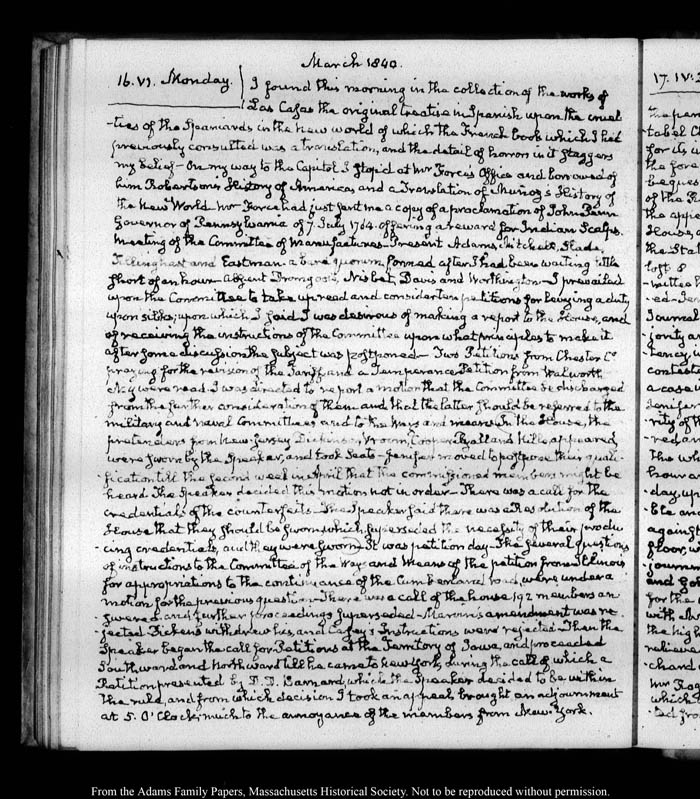 March 1840.
16. VI. Monday. I found this morning in the collection of the works of
Las Casas the original treatise in Spanish upon the cruel
-ties of the Spaniards in the new world of which the French book which I had
previously consulted was a translation, and the detail of horrors in it staggers
my belief — On my way to the Capitol I stop'd at Mr Force's Office and borrowed of
him Robertson's History of America, and a Translation of Muñoz's History of
the New World. Mr Force had just sent me a copy of a proclamation of John Penn
Governor of Pennsylvania of 7. July 1764. offering a reward for Indian Scalps.
Meeting of the Committee of Manufactures — Present Adams, Mitchell, Slade,
Tillinghast and Eastman — a bare quorum formed after I had been waiting little
short of an hour — absent Dromgoole, Nisbet, Davis and Worthington — I prevailed
upon the Committee to take up read and consider ten petitions for levying a duty
upon silks; upon which I said I was desirous of making a report to the House, and
of receiving the instructions of the Committee upon what principles to make it
after some discussion the subject was postponed — Two Petitions from Chester Co
praying for the revision of the Tariff, and a Temperance Petition from Walworth
N.Y. were read — I was directed to report a motion that the Committee be discharged
from the further consideration of them and that the latter should be referred to the
military and naval Committees and to the Ways and means. In the House, the
pretenders from New-Jersey Dickerson, Vroom, Cooper, Ryall and Kille, appeared,
were sworn by the Speaker, and took Seats — Jenifer moved to postpone their quali
-fication till the second week in April that the commissioned members might be
heard. The Speaker decided this motion not in order — There was a call for the
credentials of the counterfeits — The Speaker said there was a Resolution of the
House that they should be sworn which superseded the necessity of their produ
-cing credentials, and they were sworn. It was petition day — The several questions
of instructions to the Committee of the Ways and Means of the petition from Illinois
for appropriations to the continuance of the Cumberland road, where under a
motion for the previous question — There was a call of the house 192 members an
-swered and further proceedings superseded — Marvin's amendment was re
-jected. Pickens withdrew his, and Casey's Instructions were rejected — Then the
Speaker began the call for Petitions at the Territory of Iowa, and proceeded
Southward and Northward till he came to New York, during the call of which a
Petition presented by D. D. Barnard, which the Speaker decided to be within
the rule, and from which decision I took an appeal, brought an adjournment
at 5. O'Clock, much to the annoyance of the members from New-York.
17. IV:
From the Adams Family Papers, Massachusetts Historical Society. Not to be reproduced without permission.